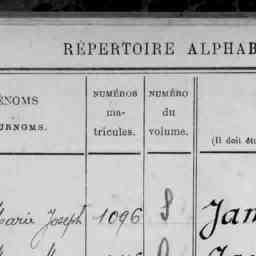 RÉPERTOIRE ALPHAB
ÉNOMS
URNOMS.
NUMÉROS
ma-
tricules.
NUMÉRO
du
volume.
(Il doit êt
Marie Joseph 1096 8 Jan